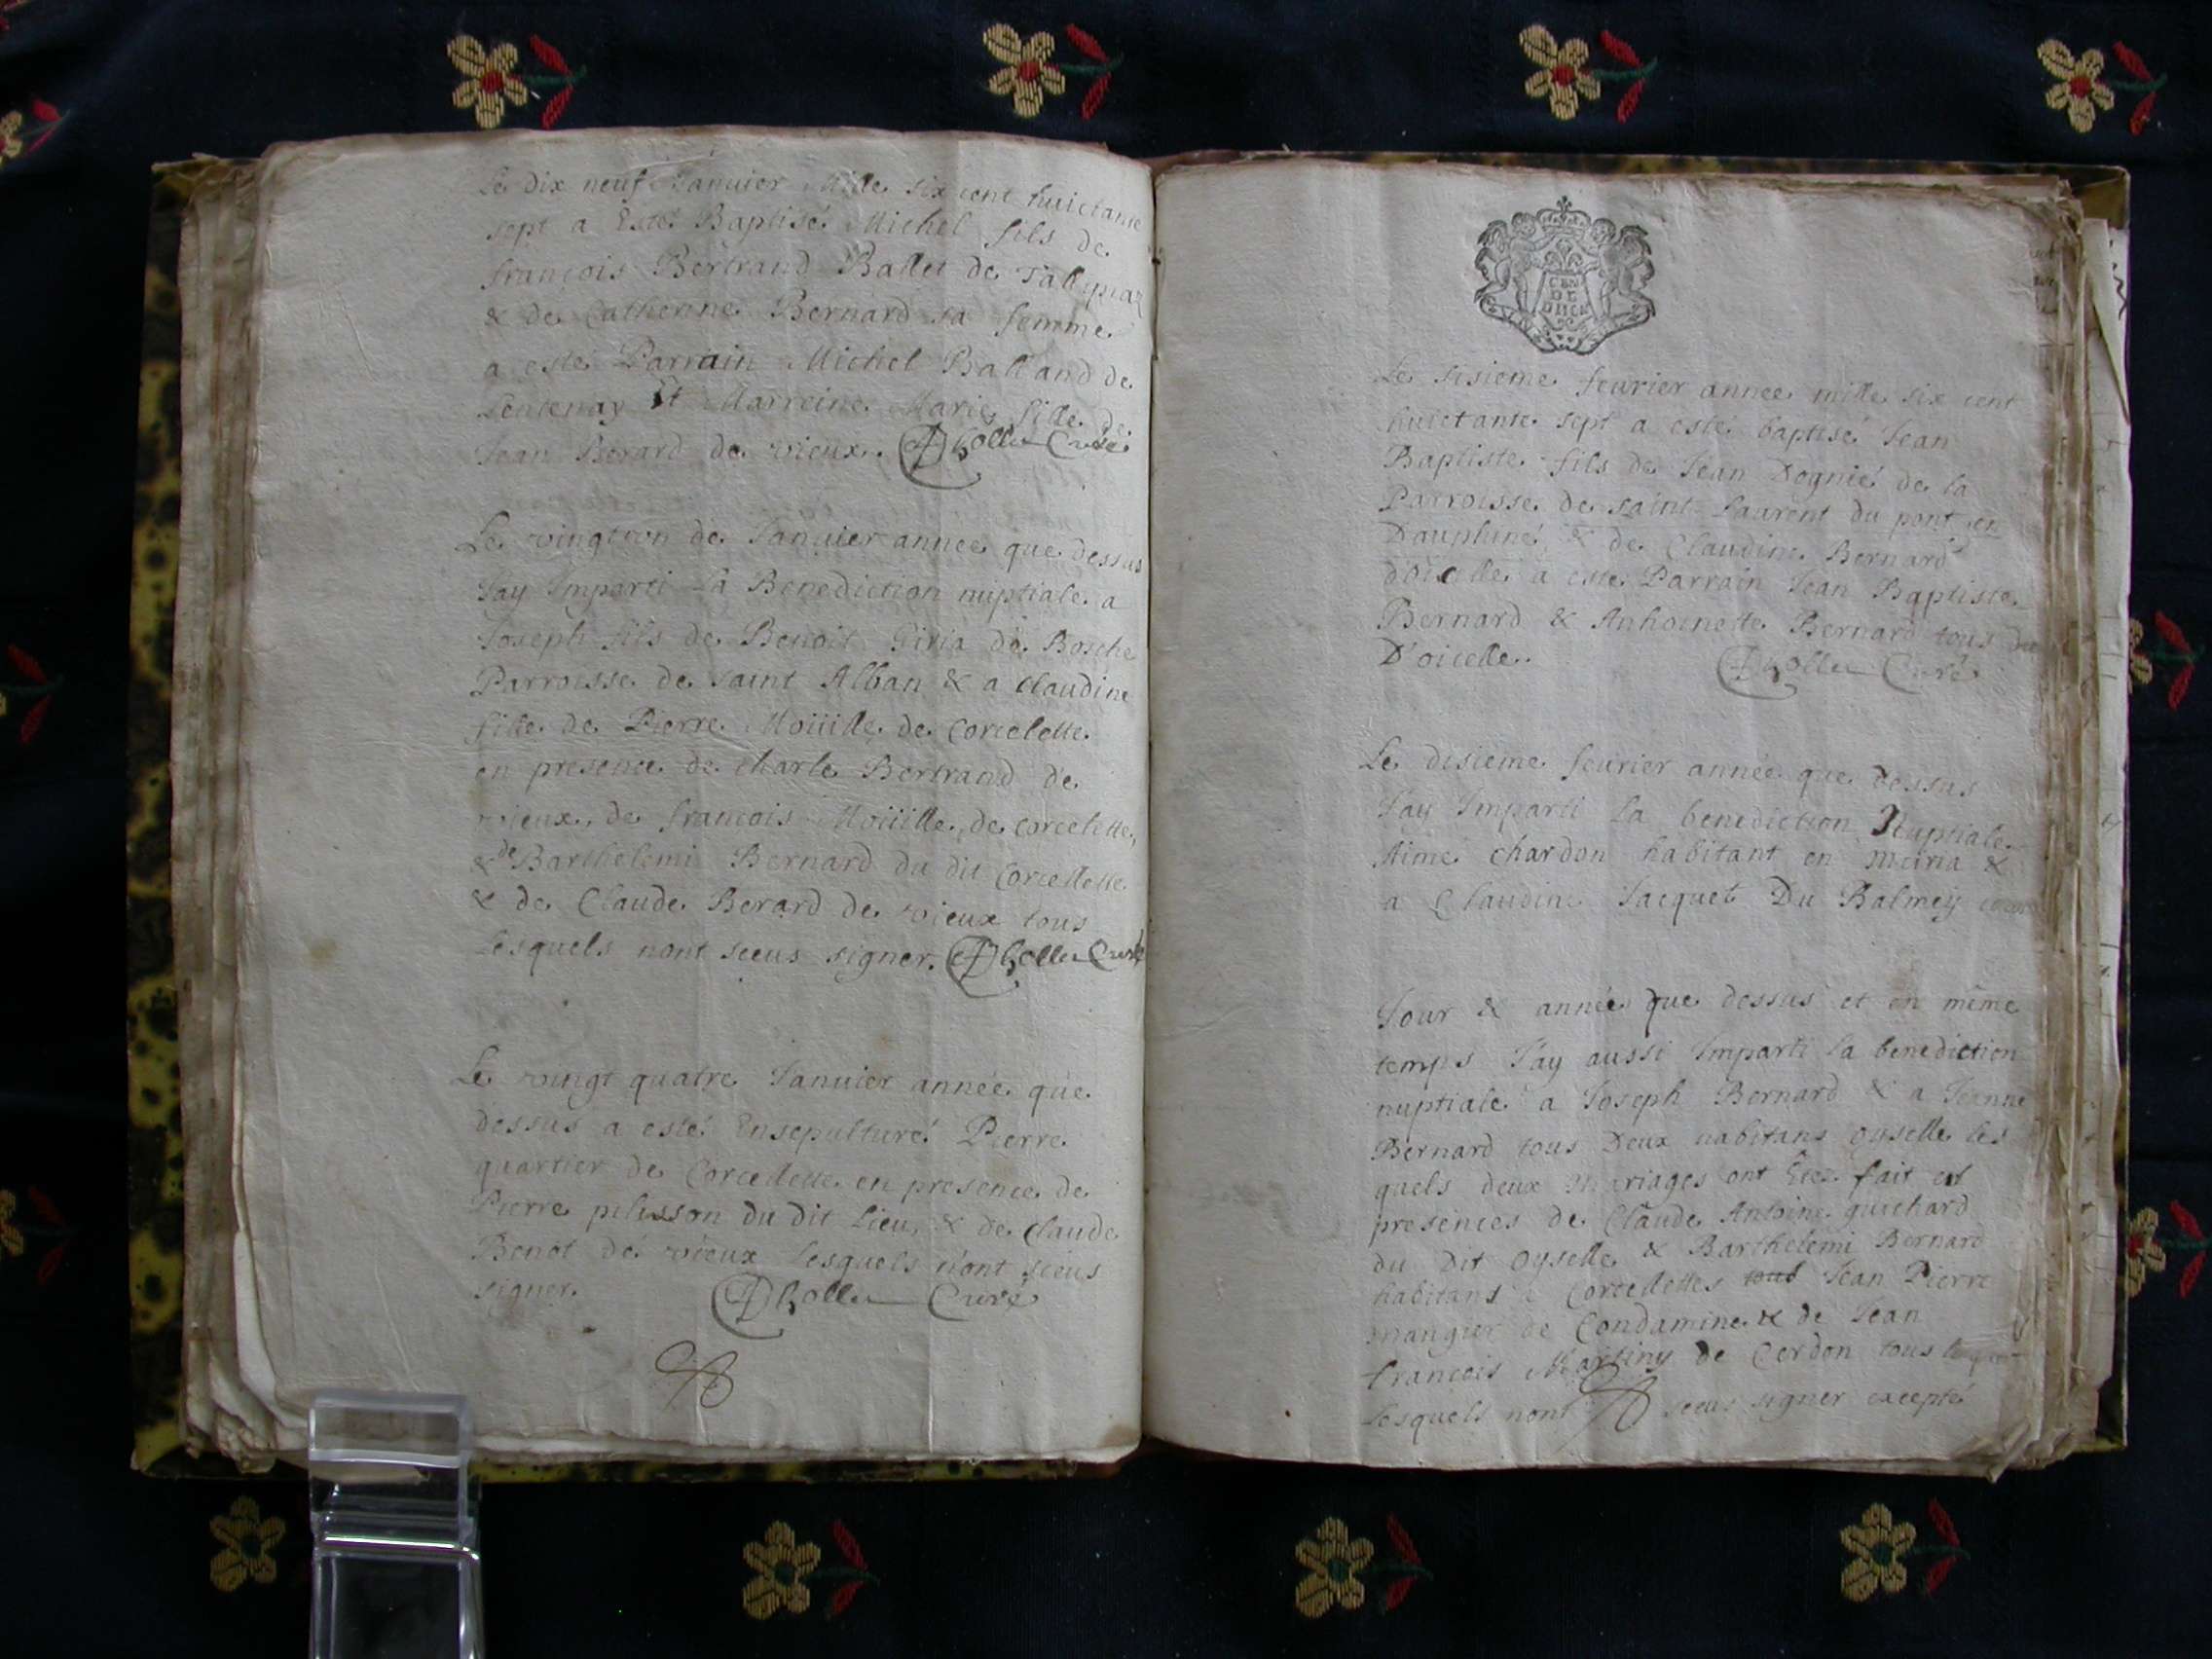 Le dix neuf Januier Mille six cent huictante
sept a Esté Baptisé Michel fils de
françois Bertrand Ballet de
& de Catherine Bernard sa femme
a esté Parrain Michel Balland de
Lentenay Et Marreine Marie fille de
Jean Berard de vieux. Curé
Le vingt un de Januier annee que dessus
Jay Imparti La Benediction nuptiale a
Joseph fils de Benoit Giria de Bosche
Parroisse de saint Alban & a Claudine
fille de Pierre Moüille de Corcelette
en presence de charle Bertrand de
vieux, de francois Moüille, de corcelette,
& de Barthelemi Bernard du dit Corcellette
& de Claude Berard de vieux tous
Lesquels nont sceus signer. Curé
Le vingt quatre Januier année que
dessus a esté Ensepulturé Pierre
quartier de Corcellette en presence de
Pierre pelisson du dit Lieu, & de Claude
Benot de vieux Lesquels n'ont sceus
signer. Curé
GEN
DE
DIION
Le sisieme feurier annee mille six cent
huictante sept a esté baptisé Jean
Baptiste fils de Jean Dognié de la
Parroisse de saint Laurent du pont en
Dauphiné & de Claudine Bernard
d'Oiselle a este Parrain Jean Baptiste
Bernard & Anhoinette Bernard tous
D'oicelle. Curé
Le disieme feurier année que dessus
Jay Imparti la benediction Nuptiale
Aimé chardon habitant en meiria &
a Claudine Jacquet Du Balmey
Jour & année que dessus et en même
temps J'ay aussi Imparti la benediction
nuptiale a Joseph Bernard & a Jeanne
Bernard tous Deux habitans Oyselle les
quels deux mariages ont Étez fait en
presences de Claude Antoine guichard
du Dit Oyselle & Barthelemi Bernard
habitans Corcellettes Jean Pierre
mangier de Condamine & de Jean
francois Martiny de Cerdon tous
Lesquels nont sceus signer excepté